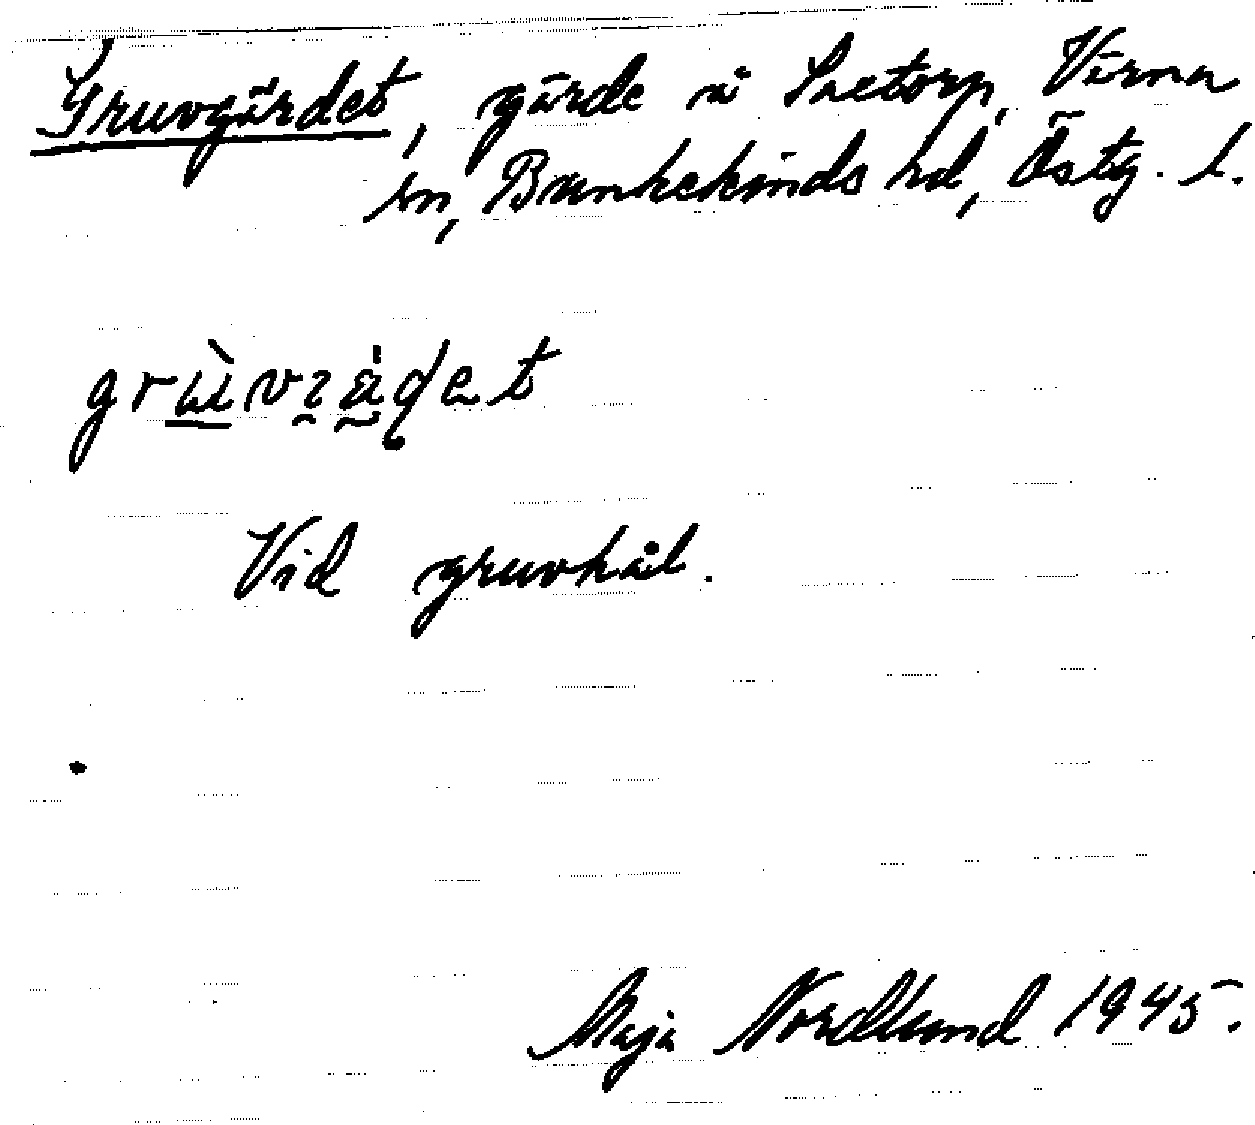 Gruvgärdet, gärde å Saetorp, Värna
sn, Bankekinds hd, Östg. l.
grùvɪàdet
Vid gruvhål.
Maja Nordlund 1945.